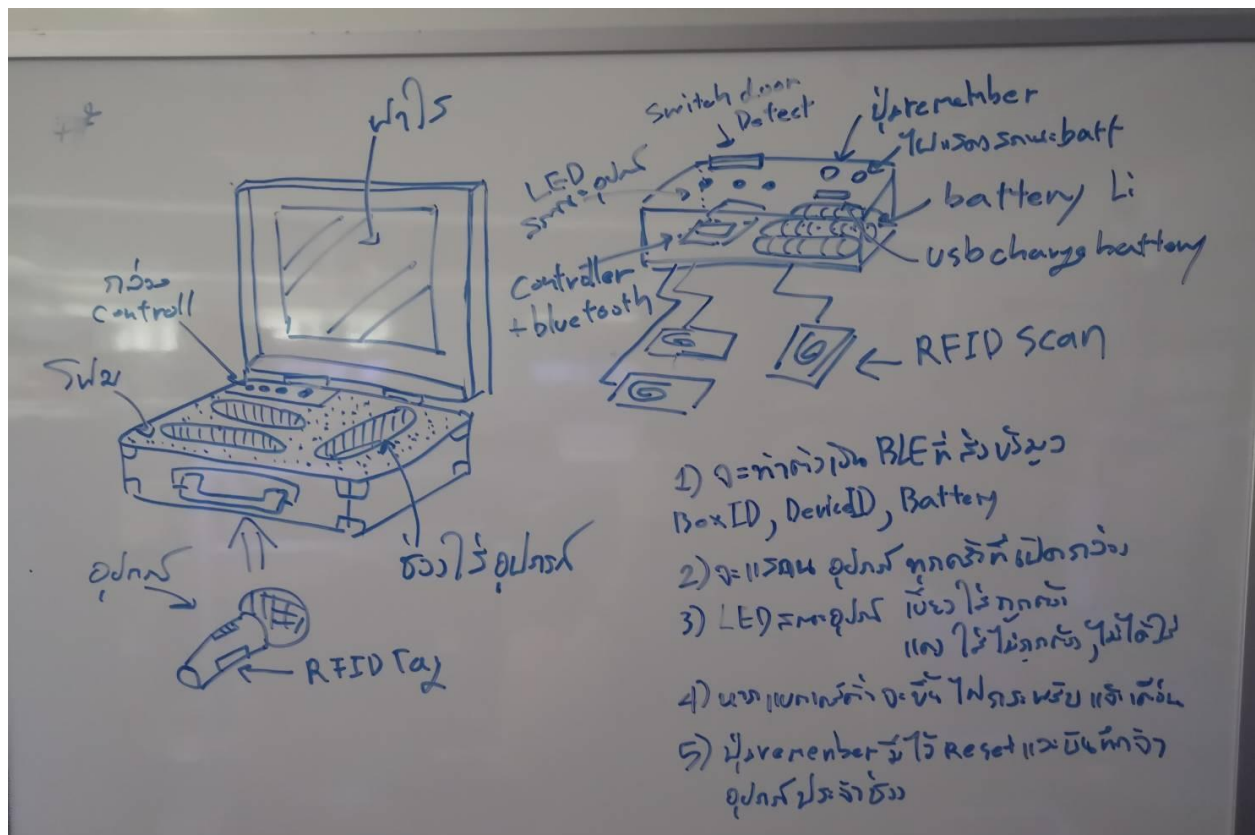 ฝาใส
กล่อง
controll
โฟม
อุปกรณ์
ช่องใส่อุปกรณ์
RFID Tag
switch door
Detect
ปุ่มremember
ไฟแสดงสถานะbatt
LED
สถานะอุปกรณ์
battery Li
usb charge battery
controller
+bluetooth
RFID Scan
1) จะทำตัวเป็น BLE ที่ส่งข้อมูล
BoxID, DeviceID, Battery
2) จะแสกน อุปกรณ์ ทุกครั้งที่เปิดกล่อง
3) LED สถานะอุปกรณ์ เขียว ใส่ถูกตัว
แดง ใส่ไม่ถูกตัว, ไม่ได้ใส่
4) หากแบตเตอรี่ต่ำ จะขึ้น ไฟกระพริบ แจ้งเตือน
5) ปุ่มremember มีไว้ Reset และบันทึกว่า
อุปกรณ์ประจำช่อง